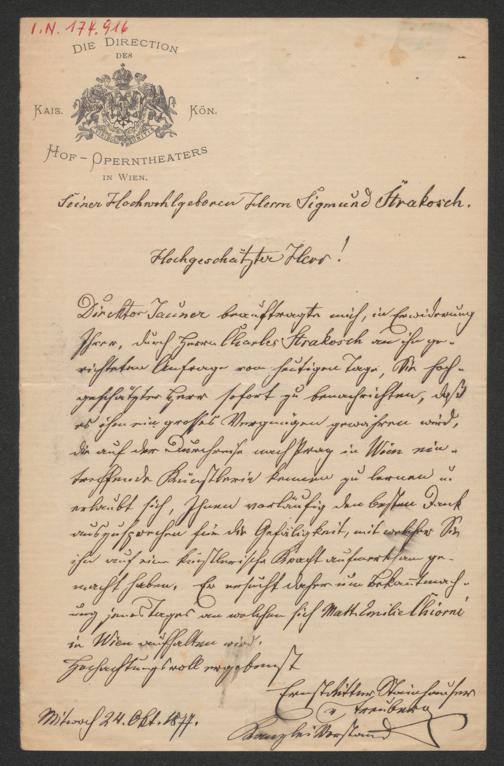 I.N. 174.916
DIE DIRECTION
DES
KAIS. KÖN.
HOF-OPERNTHEATERS
IN WIEN.
Seiner Hochwohlgeboren Herrn Sigmund Strakosch.
Hochgeschätzter Herr!
Direktor Jauner beauftragte mich, in Erwiderung
Ihrer, durch Herrn Charles Strakosch an ihn ge-
richteten Anfrage vom heutigen Tage, Sie hoch-
geschätzter Herr sofort zu benachrichten, daß
es ihm ein großes Vergnügen gewähren wird,
die auf der Durchreise nach Prag in Wien ein-
treffende Künstlerin kennen zu lernen u.
erlaubt sich, Ihnen vorläufig den besten Dank
auszusprechen für die Gefälligkeit, mit welcher Sie
ihn auf eine künstlerische Kraft aufmerksam ge-
macht haben. Er ersucht daher um Bekanntmach-
ung jenes Tages an welchem sich Emilie Chiomi
in Wien aufhalten wird.
Hochachtungsvoll ergebenst
Ernst Ritter Steinhauser
v Treuberg
Kanzleivorstand
Mitwoch 24. Okt. 1877.